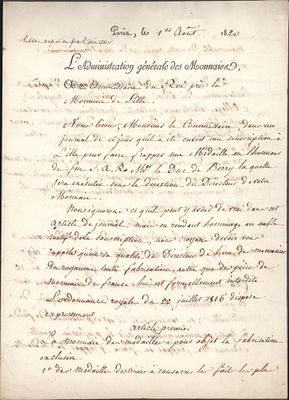 Paris, le 1er Août 1820
L'Administration générale des Monnaies,
Commissaire du Roi près la
Monnaie de Lille
Nous lisons, Monsieur le Commissaire, dans un
journal de ce jour qu'il a été ouvert une souscription à
Lille pour faire frapper une Médaille en l'honneur
de feu S. A. R. Mgr. le Duc de Berry laquelle
sera exécutée sous la direction du Directeur de votre
Monnaie.
Nous ignorons ce qu'il peut y avoir de vrai dans cet
article de journal; mais en rendant hommage au noble
motif de la souscription, nous croyons devoir vous
rappeler qu'en sa qualité de Directeur de l'une des monnaies
du royaume toute fabrication, autre que des pièces de
monnaie de france lui est formellement interdite.
L'ordonnance royale du 22 juillet 1816 dispose
expressément
article premier
La monnaie des médailles a pour objet la fabrication
exclusive
1o des médailles destinées à consacrer les faits les plus